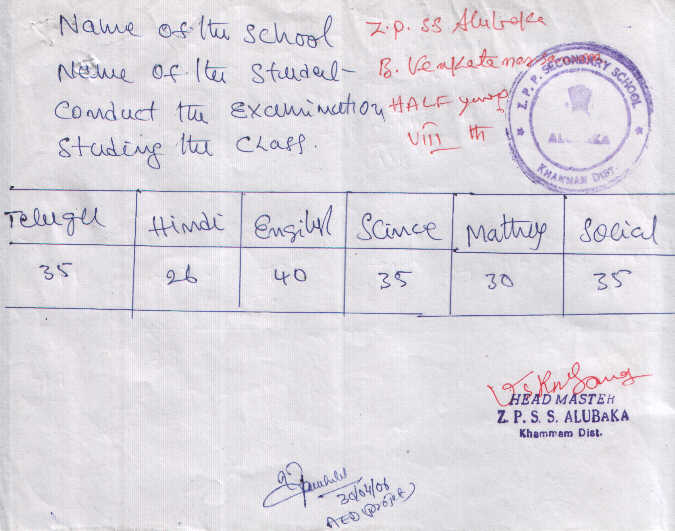 Name of the school Z.P.SS Alubaka
Name of the Student- B. Venkata
Conduct the Examination HALF yearly
Studing the Class. VIII th
Z.P.P. SECONDARY SCHOOL
ALUBAKA
KHAMMAM DIST.
Telugu Hindi Science Social
35 26 40 35 30 35
HEAD MASTER
Z. P. S. S. ALUBAKA
Khammam Dist.
30/04/06